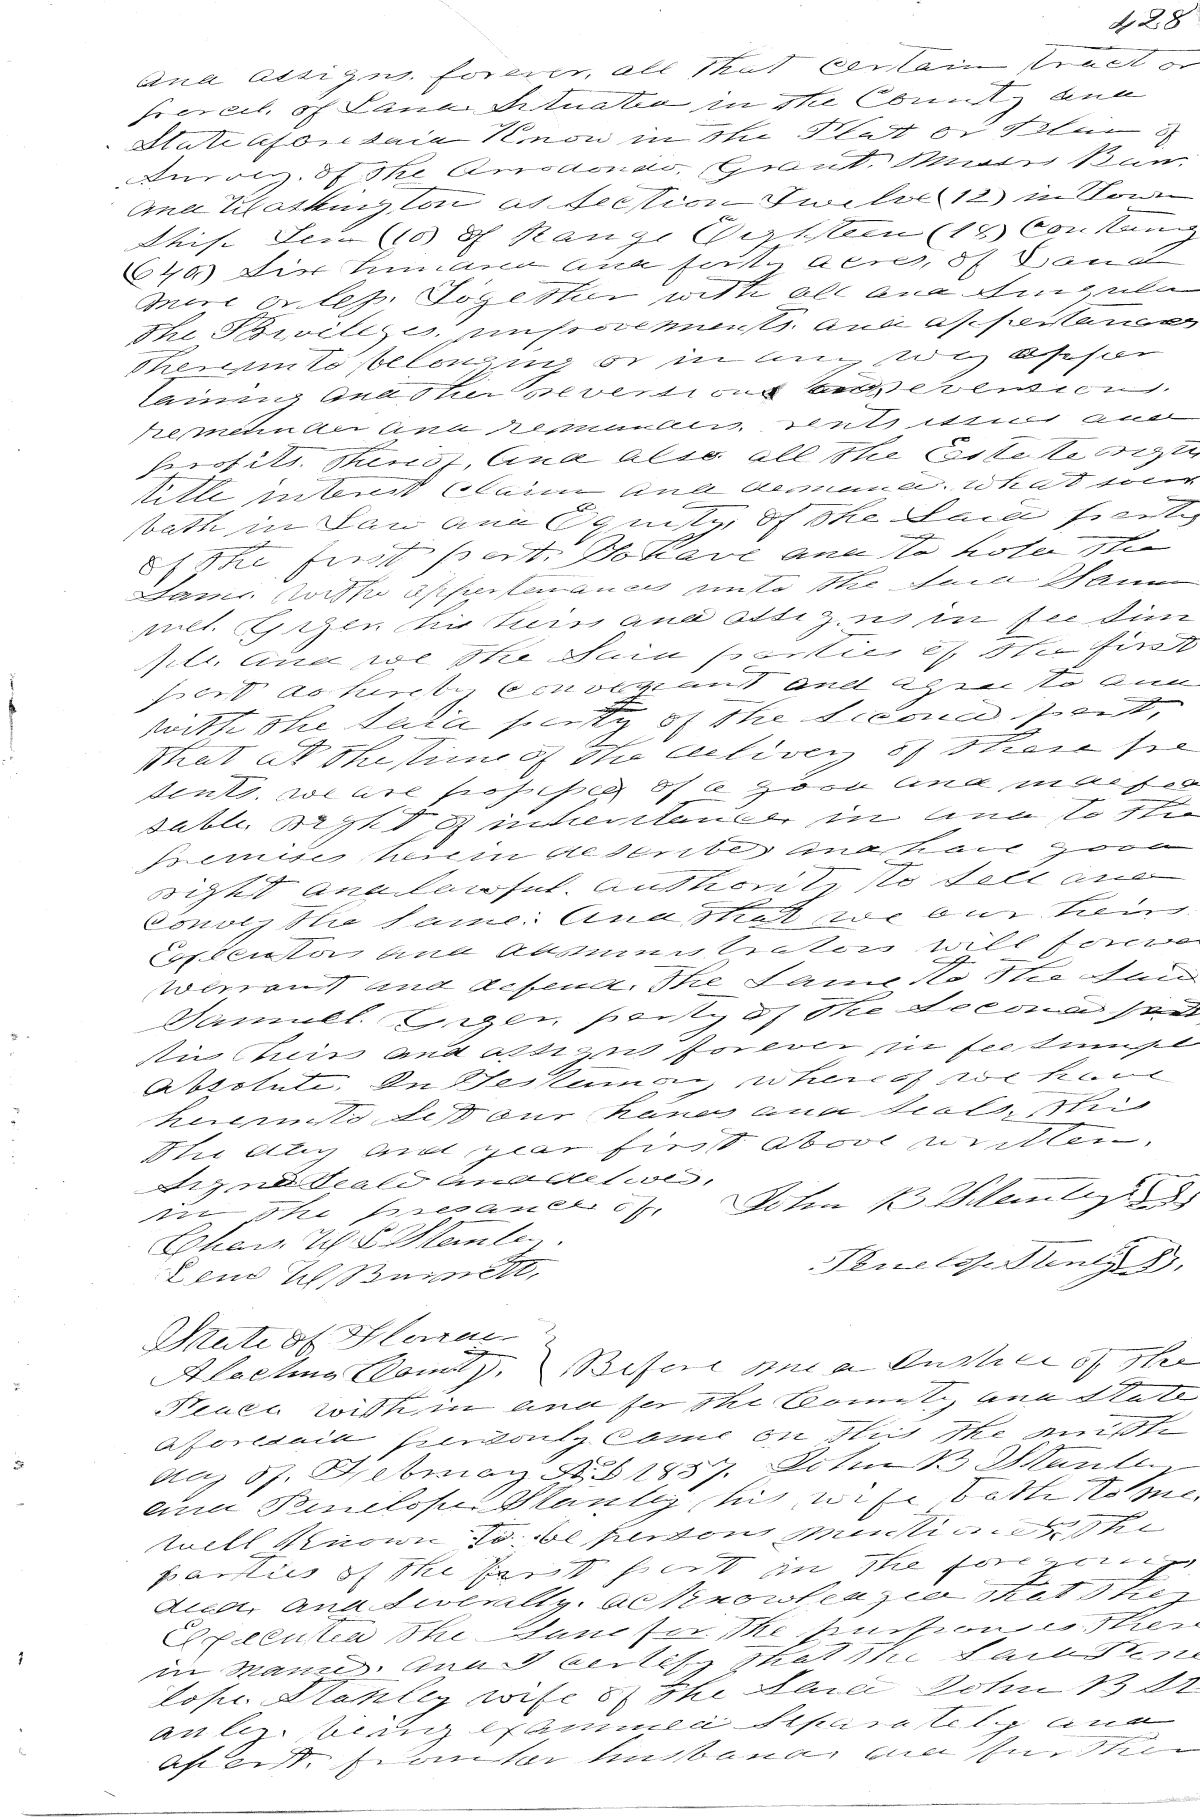 428
and assigns forever, all that certain tract or
parcel of Land Situated in the County and
State aforesaid Know in the Plat or Plan of
Survey of the Arrodondo Grant. Messrs
and Washington as Section Twelve (12) in Town
ship Ten (10) of Range Eighteen (18) Containg
(640) Six hundred and forty acres, of Land
more or less. Together with all and Singular
the Privileges, improvements and appertances
thereunto belonging or in any way apper
taining and ther reversion and reversions.
remainder and remainders, rents issues and
profits thereof, And also all the Estate right
title interest claim and demand what soever
bath in Law and Equity, of the Said party
of the first part. To have and to hold the
Same with appertenances unto the Said Samu
uel Geiger his heirs and assigns in fee Sim
ple. and we the Said parties of the first
part do hereby convenant and agree to and
with the Said party of the Second part,
that at the time of the delivery of these pre
sents. we are possesed of a good and indefea
sable right of inheritance in and to the
premises herein described and have good
right and lawful authority to Sell and
convey the Same: And that we our heirs
Executors and administrators will forever
warrant and defend the Same to the Said
Samuel Geiger, party of the Second part
his heirs and assigns forever in fee simple
absolute. In Testamony whereof we have
hereunto Set our hands and Seals, this
the day and year first above written.
Signed Seald and delived,
in the presance of, John B Stanley
Chas. W L Stanley.
W Burnett. Penelope Stanly
State of Florida
Alachua County. } Before me a Justice of the
Peace within and for the County and State
aforesaid personly came on this the ninth
day of February A.D 1857. John B Stanley
and Penelope Stanley his wife bath to me
well Known to be persons mentioned the
parties of the first part in the foregoing
deed and Severally acknowledged that they
Executed the Same for the purposes there
in named. And I certify that the Said Pene
lope Stanley wife of the Said John B St
anley. being examined Separately and
apart from her husband and further